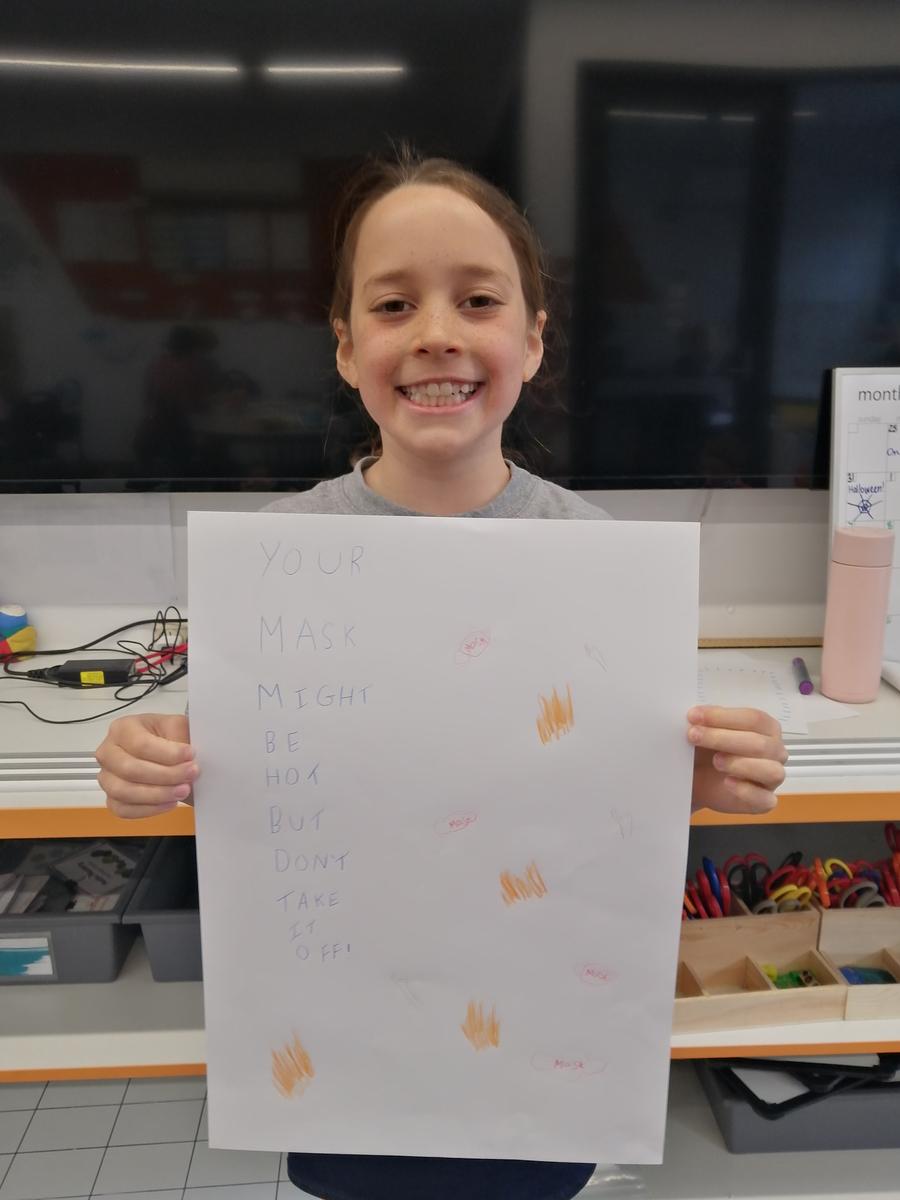 YOUR
MASK
MIGHT
BE
HOT
BUT
DON'T
TAKE
IT
OFF!
MASK
MASK
MASK
Mask
month
sunday
31
Halloween!
25
On